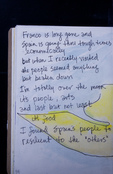 Franco is long gone and
Spain is going thru tough times
economically
but when I recently visited
the people seemed anything
but beaten down
I'm totally over the moon
its people, arts
and last but not least
its food
I found Spain's people
resilient to the "others"